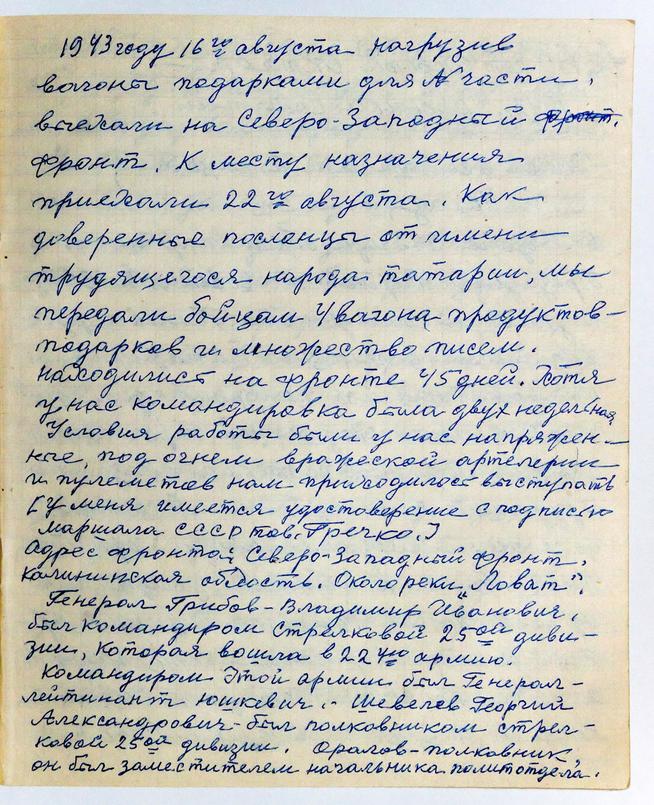 1943 году 16го августа нагрузив
вагоны подарками для N части,
выехали на Северо-Западный фронт.
фронт. К месту назначения
приехали 22го августа. Как
доверенные посланцы от имени
трудящегося народа татарии, мы
передали бойцам 4 вагона продуктов-
подарков и множество писем.
находились на фронте 45 дней. Хотя
у нас командировка была двух недельная,
Условия работы были у нас напряжен-
ные, под огнем вражеской артелерии
и пулеметов нам приходилось выступать
[у меня имеется удостоверение с подписью
маршала СССР тов. Гречко.]
Адрес фронта: Северо-Западный фронт.
Калининская область. Около реки "Ловат".
Генерал Грибов-Владимир Иванович,
был командиром стрелковой 25ой диви-
зии, которая вошла в 22ую армию.
Командиром этой армии был Генерал-
лейтинант Юшкевич. - Шевелев Георгий
Александрович-был полковником стрел-
ковой 25ой дивизии. Оралов-полковник,
он был заместителем начальника политотдела.